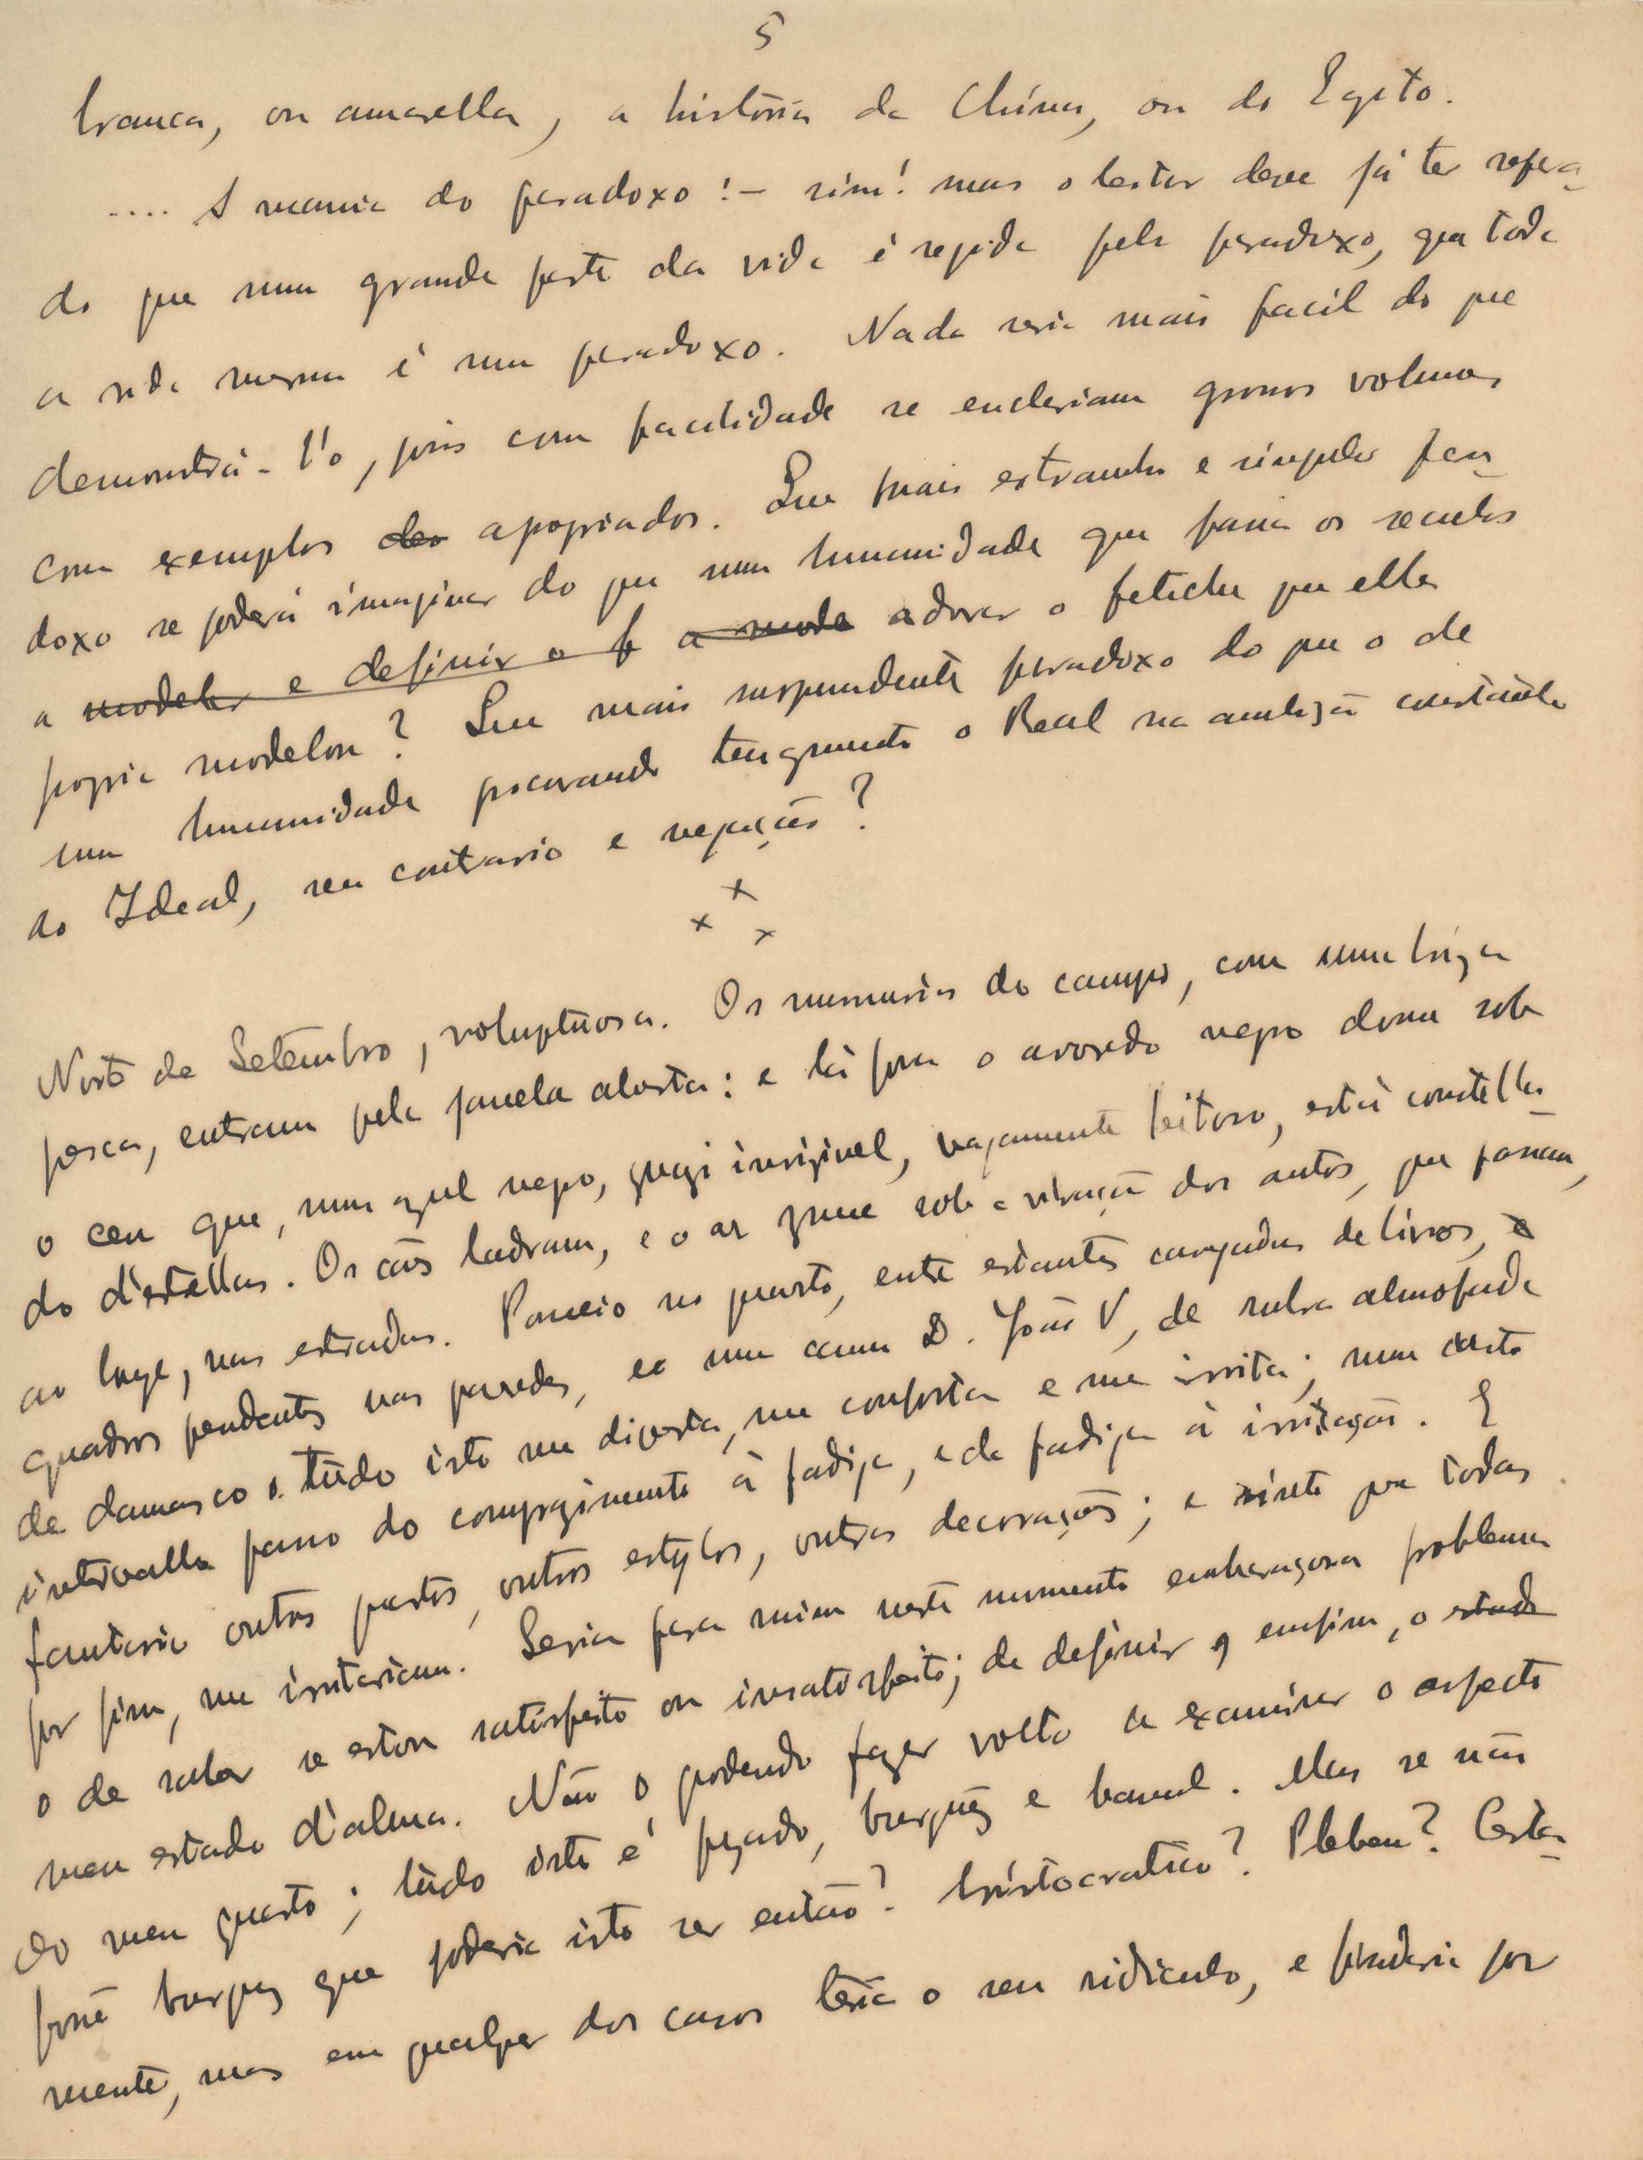 5
branca, ou amarella, a história da China, ou do Egito.
.... A mania do paradoxo! – sim! mas o leitor deve já ter repara-
do que uma grande parte da vida é regida pelo paradoxo, que toda
a vida mesma é um paradoxo. Nada seria mais facil do que
demonstrá-l'o, pois com facilidade se encheriam grossos volumes
com exemplos apopriados. Que mais estranho e singular para-
doxo se poderá imaginar do que uma humanidade que passa os seculos
a modelar e definir o f a moda adorar o fetiche que ella
propria modelou? Que mais surpreendente paradoxo do que o de
uma humanidade procurando tenazmente o Real na ambição constante
do Ideal, seu contrario e negação?
x x x
Noite de Setembro, voluptuosa. Os murmurios do campo, com uma briza
fresca, entram pela janela aberta: e lá fora o arvoredo negro dorme sob
o ceu que, num azul negro, quazi invizivel, vagamente leitoso, está constella-
do d'estrellas. Os cães ladram, e o ar zune sob a vibração dos autos, que passam,
ao longe, nas estradas. Passeio no quarto, entre estantes carregadas de livros,
quadros pendentes nas paredes, e uma cama D. João V, de rubra almofada
de damasco. Tudo isto me diverte, me conforta e me irrita; num curto
intervallo passo do comprazimento à fadiga, e da fadiga à irritação. E
fantasio outros quartos, outros estylos, outras decorações; e sinto que todas
por fim, me irritariam. Seria para mim neste momento embaraçoso problema
o de saber se estou satisfeito ou insatisfeito; de definir, emfim, o estado
meu estado d'alma. Não o podendo fazer volto a examinar o aspecto
do meu quarto; tudo isto é pezado, burguêz e banal. Mas se não
fosse burguez que poderia isto ser então? Aristocratico? Plebeu? Certa-
mente, mas em qualquer dos casos teria o seu ridiculo, e por